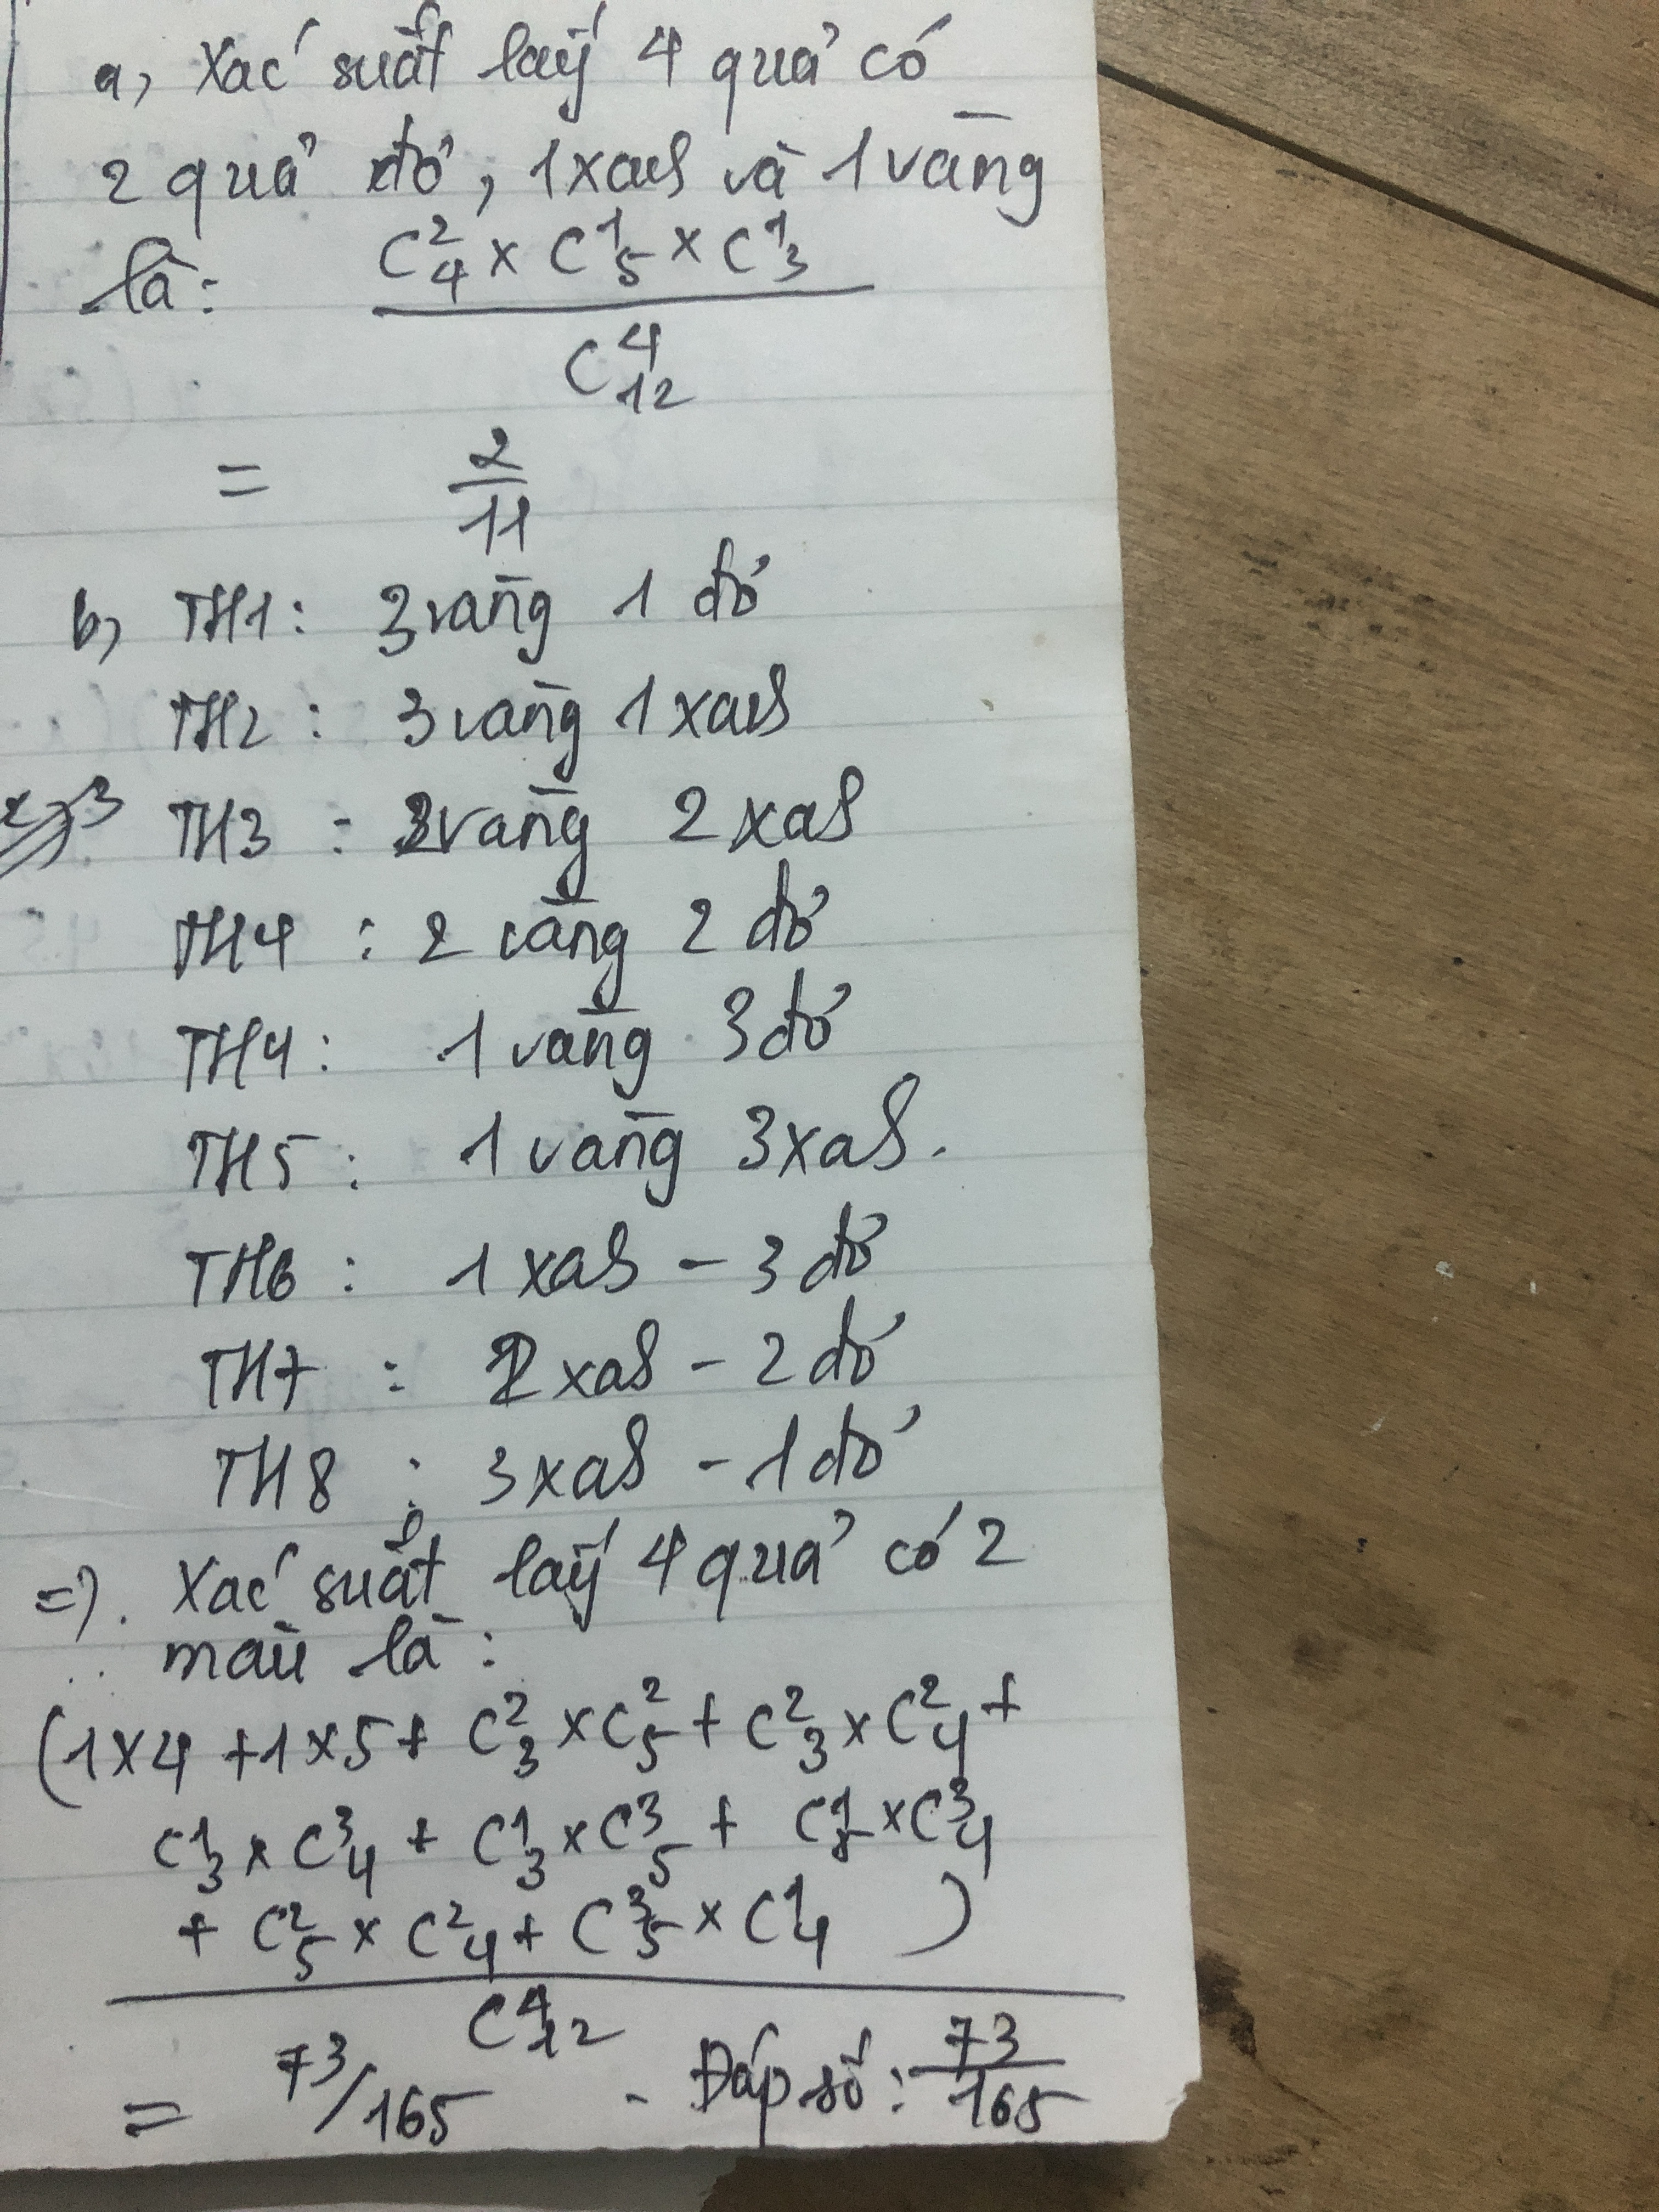 a, Xác suất lấy 4 quả có
2 quả đỏ, 1 xanh và 1 vàng
là: C²₄ x C¹₅ x C¹₃
C⁴₁₂
= 2/11
b, TH1: 3 vàng 1 đỏ
TH2: 3 vàng 1 xanh
TH3: 2 vàng 2 xanh
TH4: 2 vàng 2 đỏ
TH4: 1 vàng 3 đỏ
TH5: 1 vàng 3 xanh.
TH6: 1 xanh - 3 đỏ
TH7: 2 xanh - 2 đỏ
TH8: 3 xanh - 1 đỏ
=). Xác suất lấy 4 quả có 2
màu là:
(1x4 + 1x5 + C²₃ x C²₅ + C²₃ x C²₄ +
C¹₃ x C³₄ + C¹₃ x C³₅ + C¹₅ x C³₄
+ C²₅ x C²₄ + C³₅ x C¹₄ )
C⁴₁₂
= 73/165 - Đáp số: 73/165